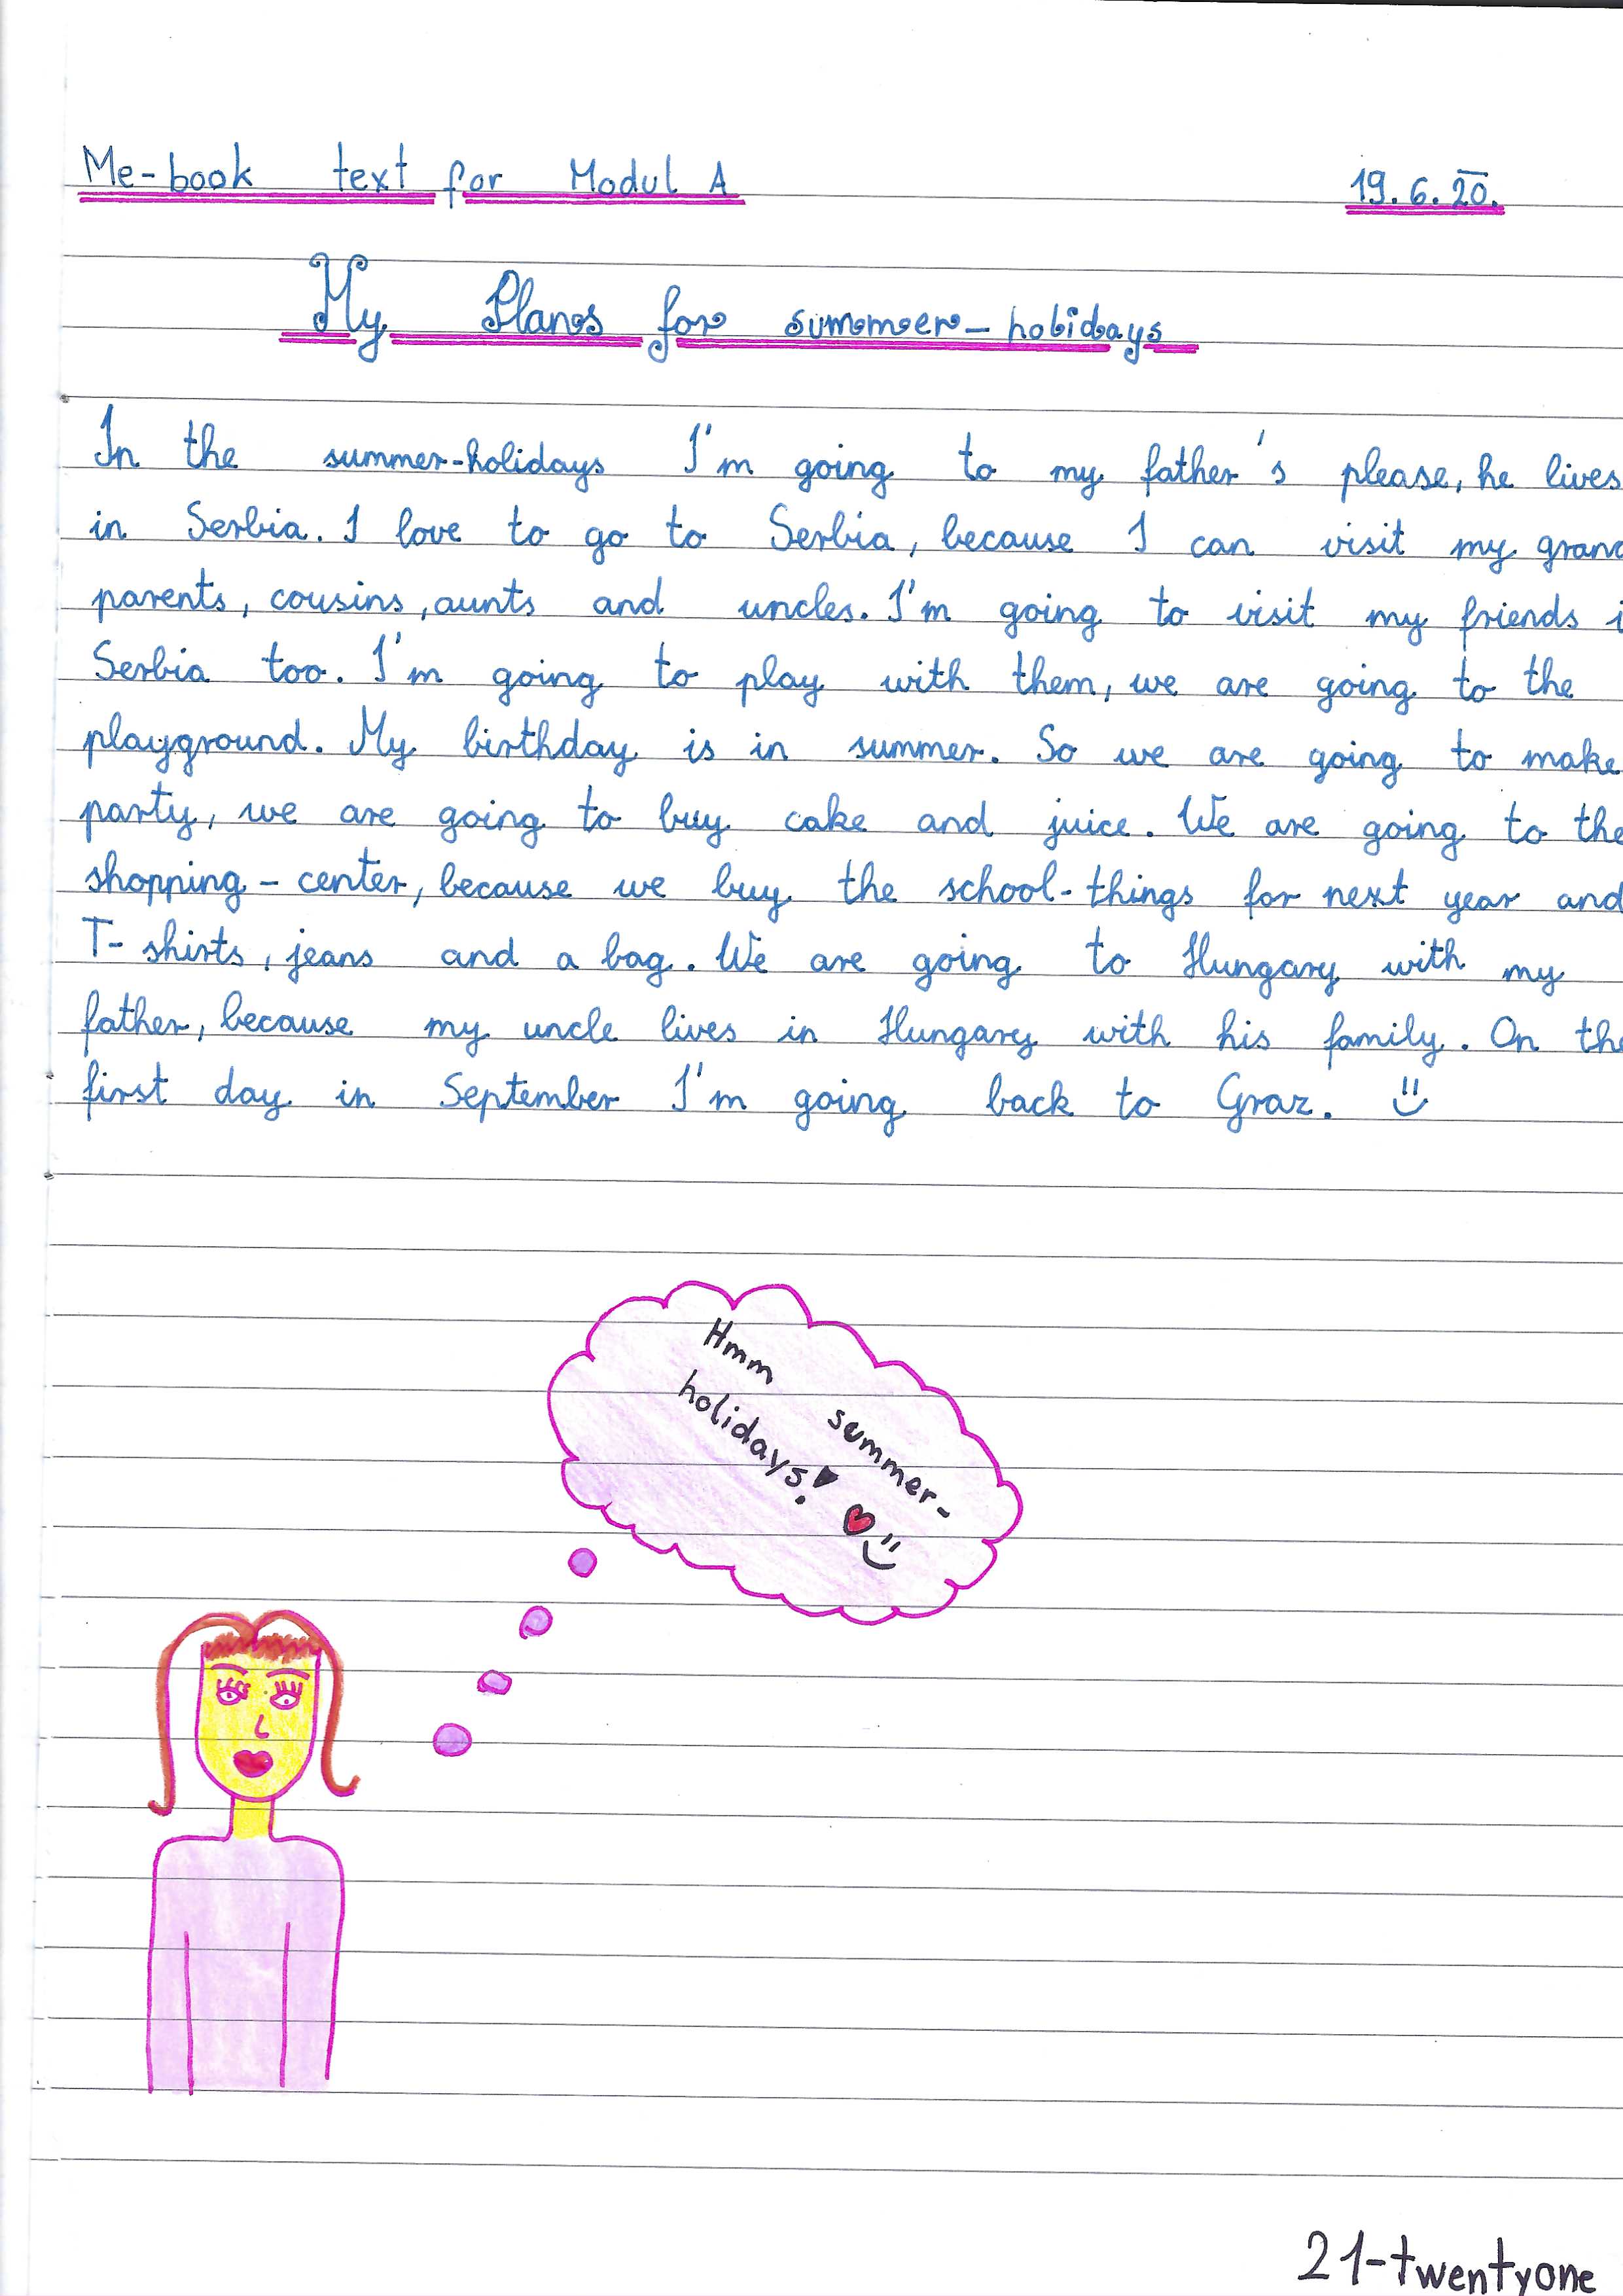 Me-book text for Modul A 19.6.20.
My Plans for summer-holidays
In the summer-holidays I'm going to my father's please, he lives
in Serbia. I love to go to Serbia, because I can visit my grand
parents, cousins, aunts and uncles. I'm going to visit my friends i
Serbia too. I'm going to play with them, we are going to the
playground. My birthday is in summer. So we are going to make
party, we are going to buy cake and juice. We are going to the
shopping-center, because we buy the school-things for next year and
T-shirts, jeans and a bag. We are going to Hungary with my
father, because my uncle lives in Hungary with his family. On the
first day in September I'm going back to Graz.
Hmm summer-
holidays!
21-twentyone